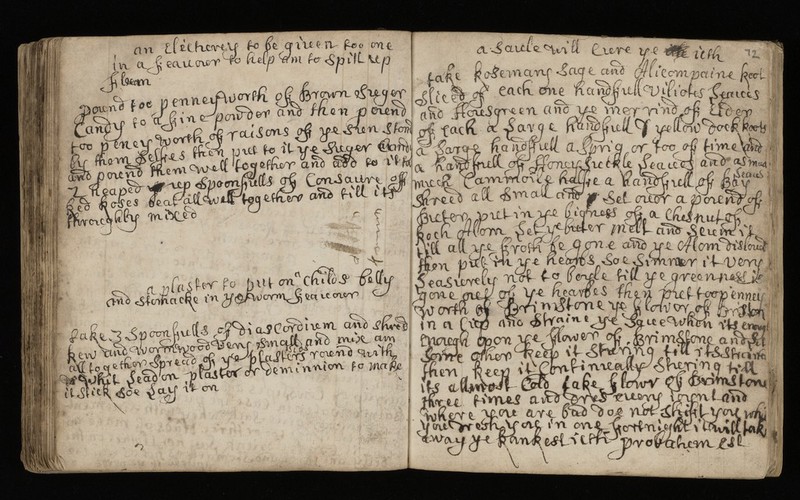 an Electuerey to be given too one
in a feauour to help am to Spitt up
fleam
pound too penneyworth of Brown Sugar
Candy to a fine powder and then pound
too peney worth of raisons of ye Sun Stond
by them Selfes then put to it ye Suger Candy
and pound them well together and add to it
2 heaped up Spoonfulls of Consarue off
Red Roses beat all well together and till its
throughly mixed
a plaster to put on a Childs belly
and Stomacke in ye worm feauour
take 3 Spoonfulls of diascordium and Shred
Rew and wormwood Very Small and mix am
all together Spread of ye plasters round with
whit Lead on plaster or deminnion to make
it Stick Soe Lay it on
a Saule will Cure ye itch
72
take Rosemary Sage and Alicompaine Root
Sliced of each one handfull Viliots Leaues
and Housgreen and ye inor rind of Elder
of each a Large handfull yellow dock Roots
a Large handfull a Sprig or too of time and
a handfull of Honey Suckle Leaues and as
much Cammoile halfe a handfull of Bay Leaues
Shreed all Small and Set ouor a pound of
Buter put in ye bigness of a Chesnut of
Roch Alom Set ye buter melt and Scum it
till all ye froth be gone and ye Alom disloued
then put in ye hearbs Soe Simmer it Very
Leasuerly not to boyle till ye greenness is
gone out of ye hearbes then put too penney
worth of Brimstone ye flower of Brimston
in a Cup and Straine ye Saue when its
enough opon ye flower of Brimstone and Let
Some other keep it Stiring till its Strained
then keep it Continually Stering till
its allmost Cold take flower of Brimstone
three times and dres euery Joynt and
where you are bad doe not Shift you
you dresh you in one fortnight it will take
away ye Rankest itch probatem est